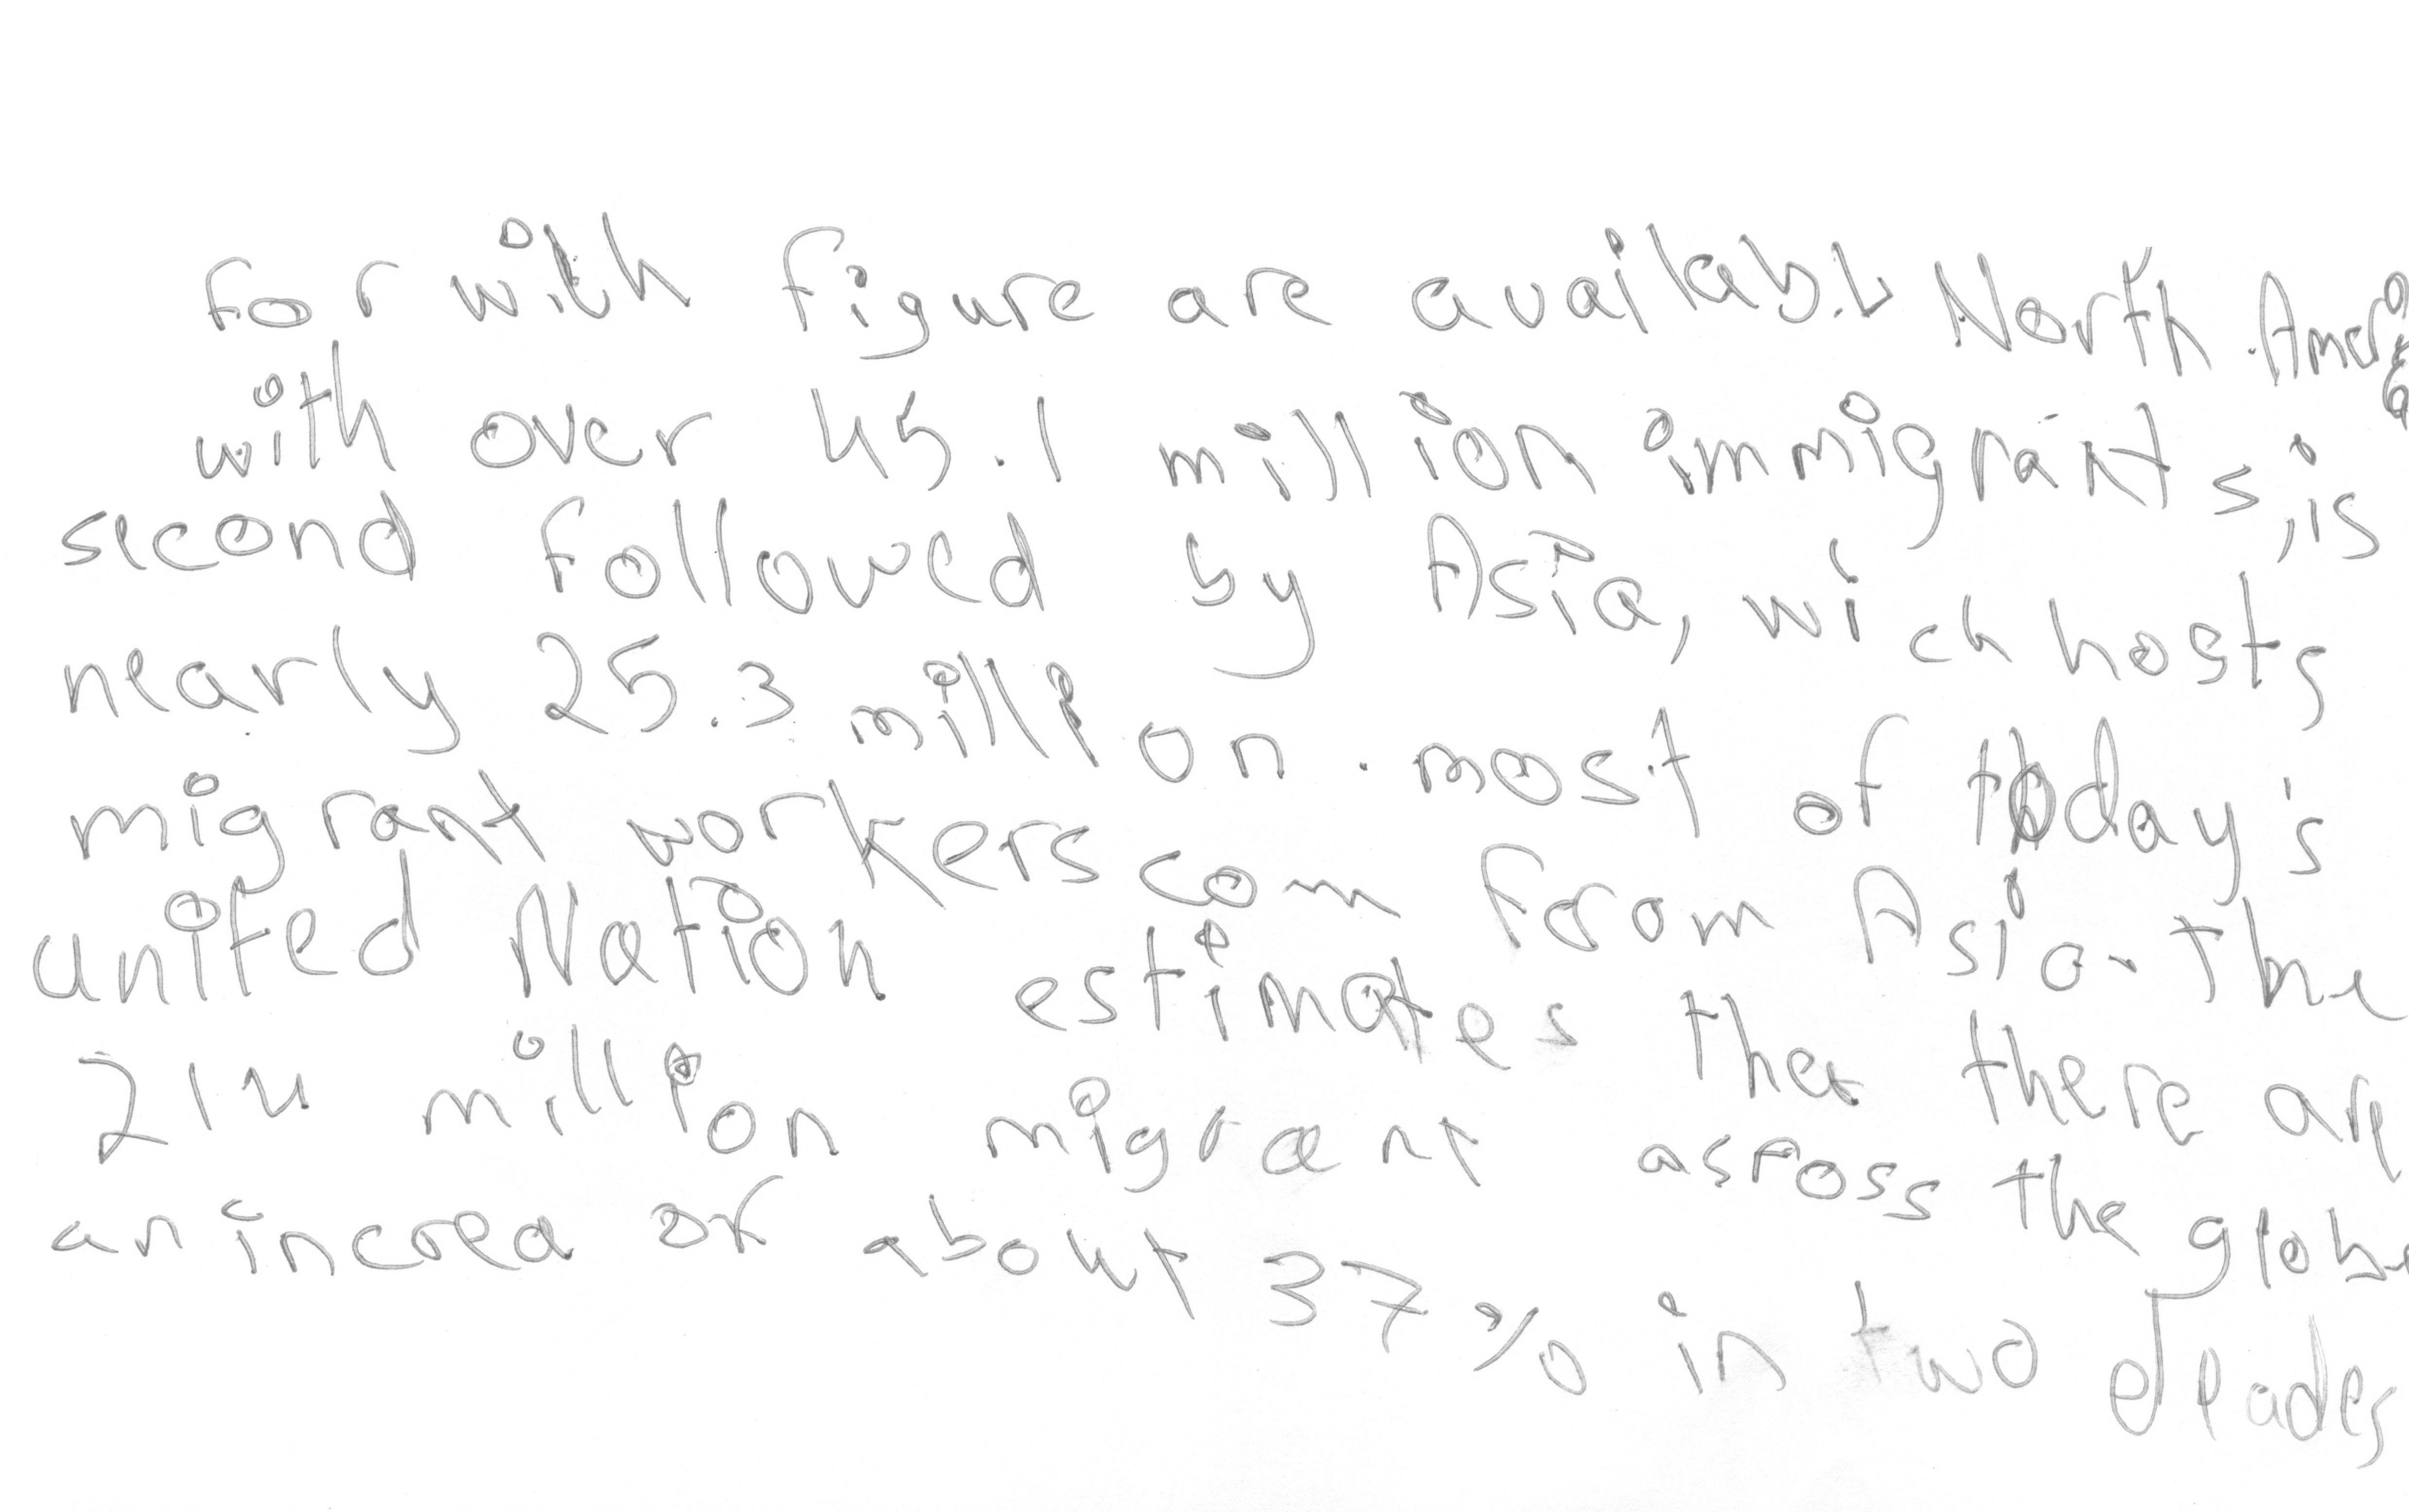 For with figure are availabl North America
with over 45.1 million immigrants, is
second followed by Asia, wich hosts
nearly 25.3 million. most of today's
migrant workers com from Asia. the
united Nation estimates that there are
214 million migrant across the globe
an increa of about 37% in two deades